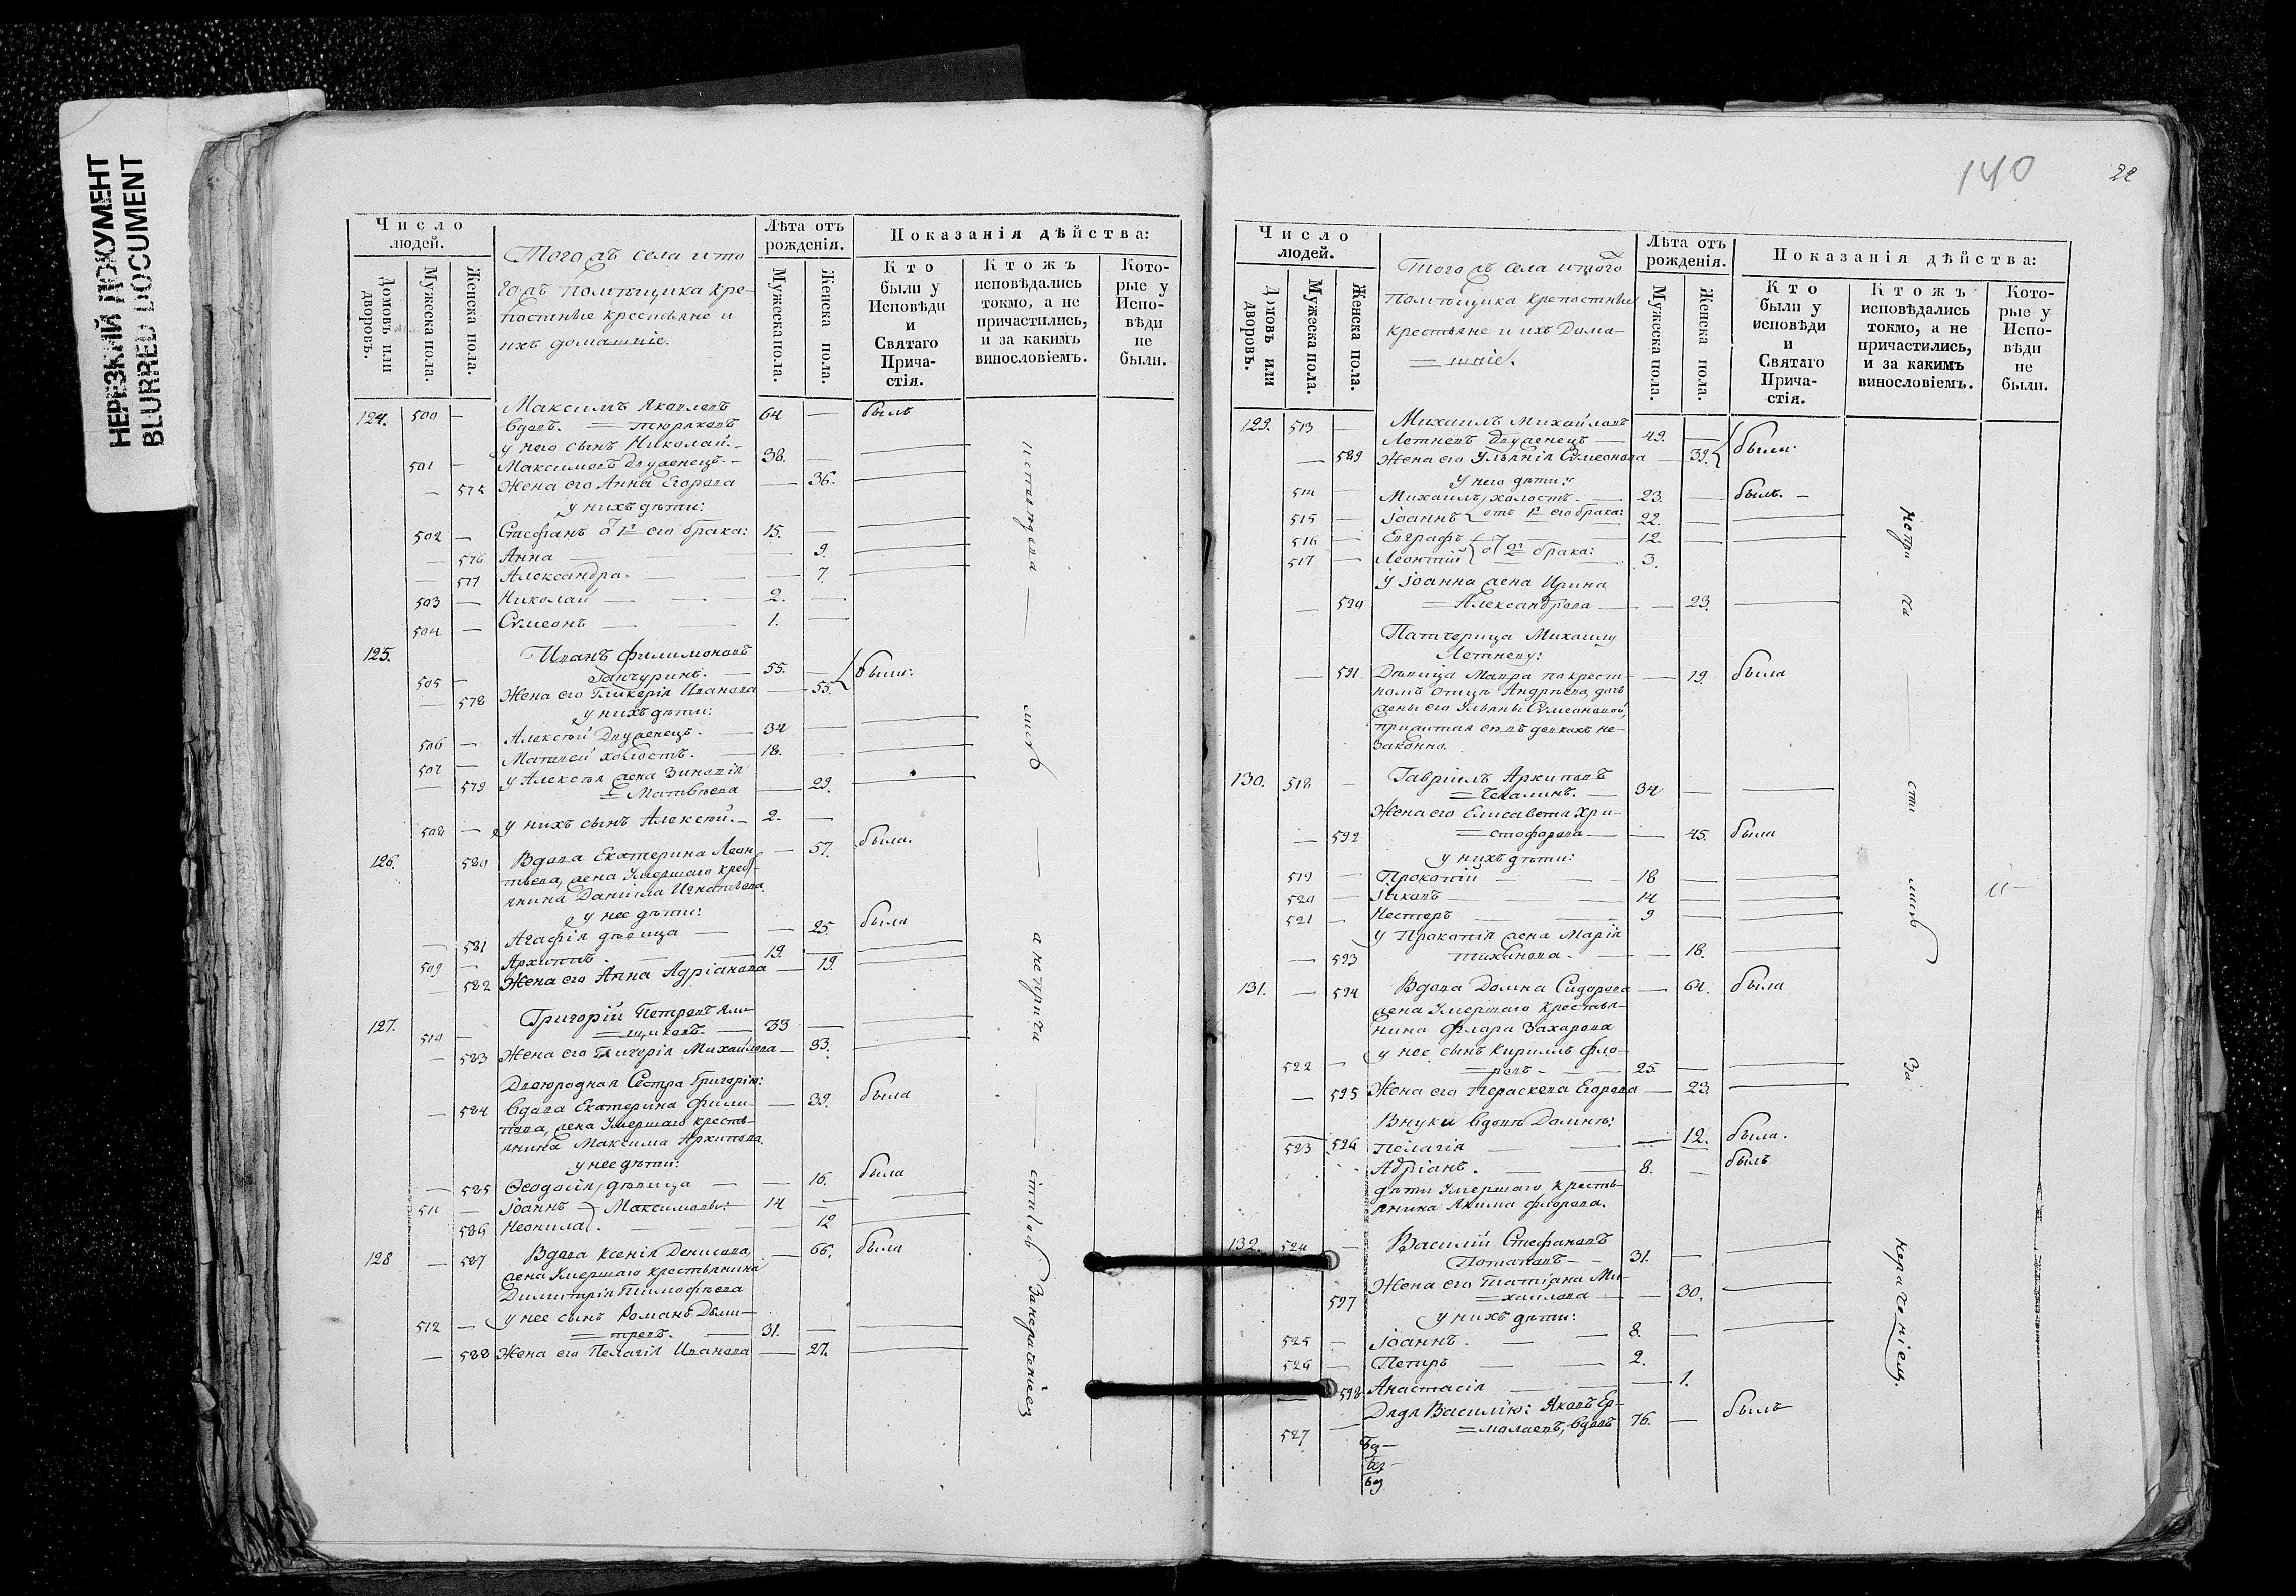 НЕРЕЗКИЙ ДОКУМЕНТ
BLURRED DOCUMENT
Число людей.
Домовъ или дворовъ.
Мужеска пола.
Женска пола.
Того жъ села и то
гожъ помѣщика кре-
постные крестьяне и
ихъ домашніе.
Лѣта отъ рожденія.
Мужеска пола.
Женска пола.
Показанія дѣйства:
Кто были у Исповѣди и Святаго Прича-стія.
Ктожъ исповѣдались токмо, а не причастились, и за какимъ винословіемъ.
Кото-рые у Испо-вѣди не были.
124. 500 — Максимъ Яковлевъ 64 — былъ
вдовъ. = Тюряковъ
у него сынъ Николай
501 — Максимовъ Двуженецъ. — 38. —
— 575 Жена его Анна Егорова — 36.
у нихъ дѣти:
502 — Стефанъ от 1го его брака: 15. —
— 576 Анна — 9.
— 577 Александра. — 7.
503 — Николай — 2. —
504 — Сѵмеонъ — 1. —
125. Иванъ Филимоновъ
505 — 55. — были:
— 578 Жена его Гликерія Иванова — 55.
у нихъ дѣти:
506 — Алексѣй Двуженецъ. — 34
507 — Матвей холостъ. — 18. —
— 579 у Алексѣя жена Зиновія
= Матвѣева — 29.
508 — у нихъ сынъ Алексѣй. — 2. —
126. 580 Вдова Екатерина Леон — 57. была.
тьева, жена умершаго крес-
янина Даніила Игнатьева
у нее дѣти:
— 581 Агафія дѣвица — 25. была
509 — Архиппъ. — 19. —
— 582 Жена его Анна Адріанова — 19.
127. 510 — Григорій Петровъ Ям-
= щиковъ. — 33 —
— 583 Жена его Гликерія Михайлова — 33.
Двоюродная Сестра Григорію:
— 584 вдова Екатерина Фили- — 39. была
пова, жена умершаго кресть-
янина Максима Архипова
у нее дѣти:
— 585 Ѳеодосія дѣвица — 16. была
511 — Іоаннъ — Максимовы: 14 —
586 Неонила — 12
128 — 587 Вдова Ксенія Денисова, — 66. была
жена умершаго крестьянина
Димитрія Тимофѣева
у нее сынъ Романъ Дми-
512 — = тревъ. — 31. —
— 588 Жена его Пелагія Иванова — 27.
исповѣдова — лись — а не прича — стились за нераченіемъ
140
22
Число людей.
Домовъ или дворовъ.
Мужеска пола.
Женска пола.
Того жъ села и того
помѣщика крепостные
крестьяне и ихъ Дома-
= шніе.
Лѣта отъ рожденія.
Мужеска пола.
Женска пола.
Показанія дѣйства:
Кто были у исповѣди и Святаго Прича-стія.
Ктожъ исповѣдались токмо, а не причастились, и за какимъ винословіемъ.
Кото-рые у Испо-вѣди не были.
129. 513 — Михаилъ Михайловъ
Летневъ Двуженецъ — 49. — были.
— 589 Жена его Ульянія Сѵмеонова — 39.
у него дѣти:
514 — Михаилъ, холостъ. — 23. — былъ. —
515 — Іоаннъ отъ 1го его брака: 22. —
516 — Евграфъ — 12 —
517 — Леонтій от 2го брака: 3.
у Іоанна жена Ирина
— 590 = Александрова — 23.
Падчерица Михаилу
Летневу:
— 591 Дѣвица Мавра по крест- — 19. была
номъ отцѣ Андрѣева, дочь
жены его Ульяны Сѵмеоновой,
прижитая ею въ девкахъ не-
законно.
130. 518 — Гавріилъ Архиповъ
= Чекалинъ. — 34 —
Жена его Елисавета Хри-
— 592 = стофорова — 45. была
у нихъ дѣти:
519 — Прокопій — 18 —
520 — Іаковъ — 14 —
521 — Несторъ — 9 —
у Прокопія жена Марія
— 593 Тихонова. — 18.
131. — 594 Вдова Домна Сидорова — 64. была
жена умершаго крестья-
нина Флора Захарова
у нее сынъ Кириллъ Фло-
522 — = ровъ — 25. —
— 595 Жена его Параскева Егорова — 23.
Внуки вдовы Домны:
523 596 Пелагія — 12. была.
Адріанъ. — 8. — былъ
дѣти умершаго кресть-
янина Якима Флорова.
132. 524 — Василій Стефановъ
Потаповъ — 31. —
Жена его Татіана Ми-
597 = хаилова — 30.
у нихъ дѣти:
525 — Іоаннъ. — 8. —
526 — Петръ — 2.
— 598 Анастасія — 1.
Дядя Василію: Яковъ Ер-
527 — = молаевъ, вдовъ 76. — былъ
не при ча — сти лись за нераченіемъ.